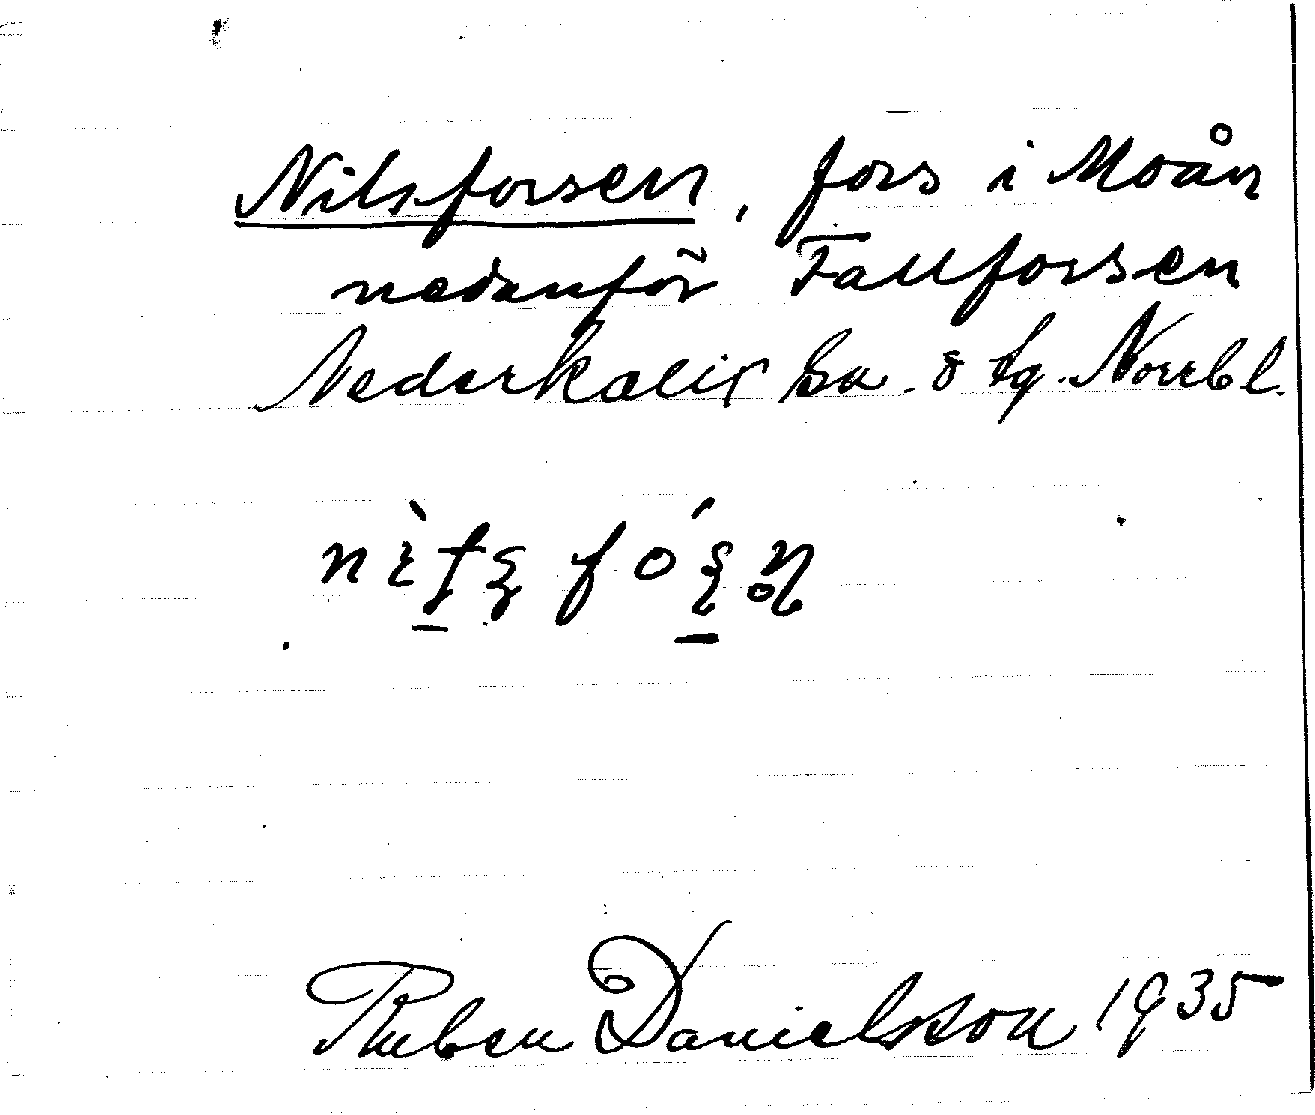 Nilsforsen, fors i Moån
nedanför Fallforsen
Nederkalix sn. o tg. Norrb l.
Ruben Danielsson 1935